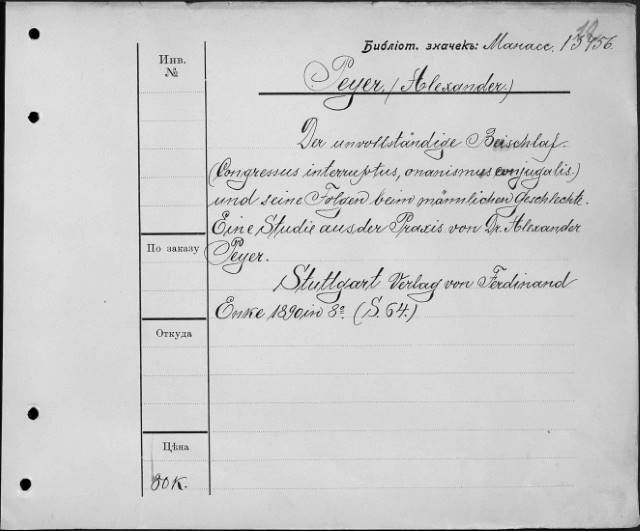 Библіот. значекъ: Манасс.
Инв.
№
Peyer (Alexander)
Der unvollständige Beischlaf.
(Congressus interruptus, onanismus conjugalis.)
und seine Folgen beim männlichen Geschlechte.
Eine Studie aus der Praxis von Dr. Alexander
По заказу
Peyer.
Stuttgart Verlag von Ferdinand
Enke 1890 in 8º (S. 64.)
Откуда
Цѣна
80 к.